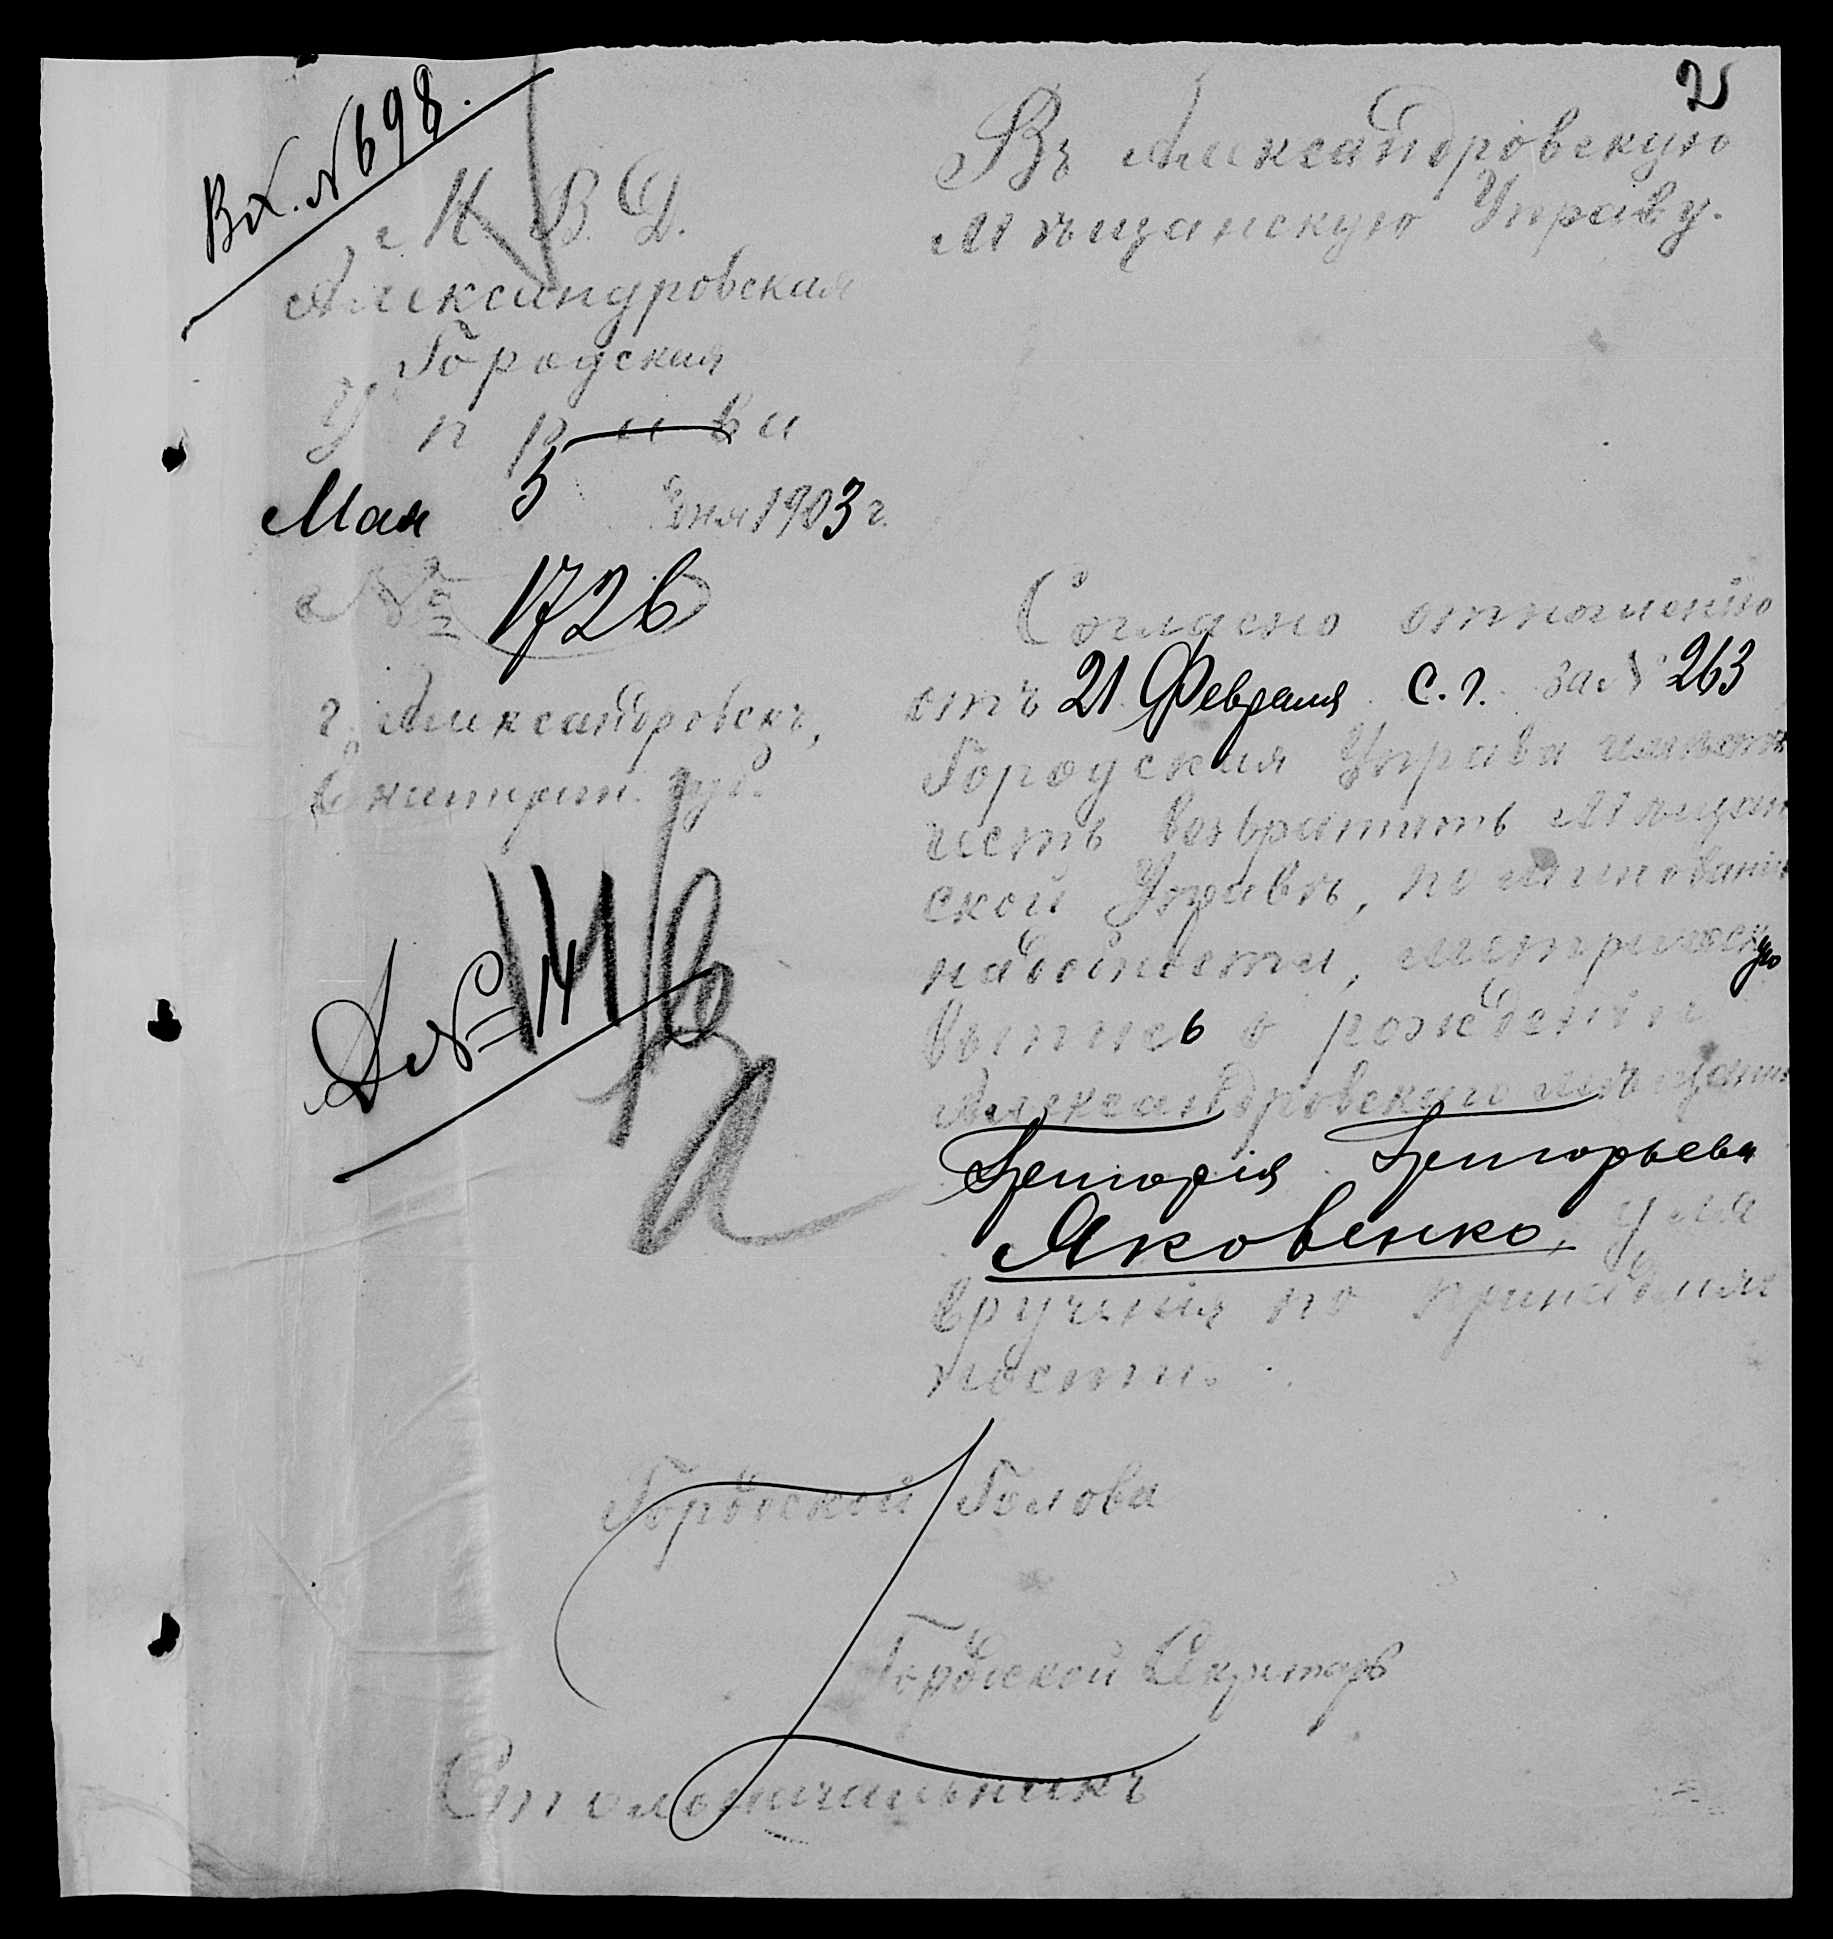 2
Вх. № 698.
Въ Александровскую
Мѣщанскую Управу.
М. В. Д.
Александровская
Городская
Управа
Мая 5 дня 1903 г.
№ 1726
г. Александровскъ,
Екатерин. губ.
Д № 141
Согласно отношенію
отъ 21 Февраля с. г. за № 263
Городская Управа имѣетъ
честь возвратить Мѣщан
ской Управѣ, по минованіи
надобности, метрическую
выпись о рожденіи
Александровскаго мѣщанина
Григорія Григорьева
Яковенко, для
врученія по принадлеж
ности.
Городской Голова
Городской Секретарь
Столоначальникъ